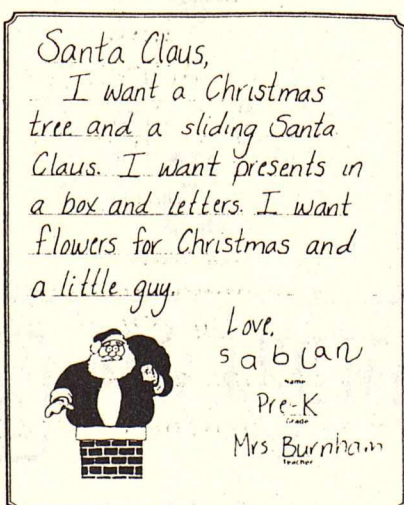 Santa Claus,
I want a Christmas
tree and a sliding Santa
Claus. I want presents in
a box and letters. I want
flowers for Christmas and
a little guy.
Love,
sabian
Name
Pre-K
Grade
Mrs Burnham
Teacher